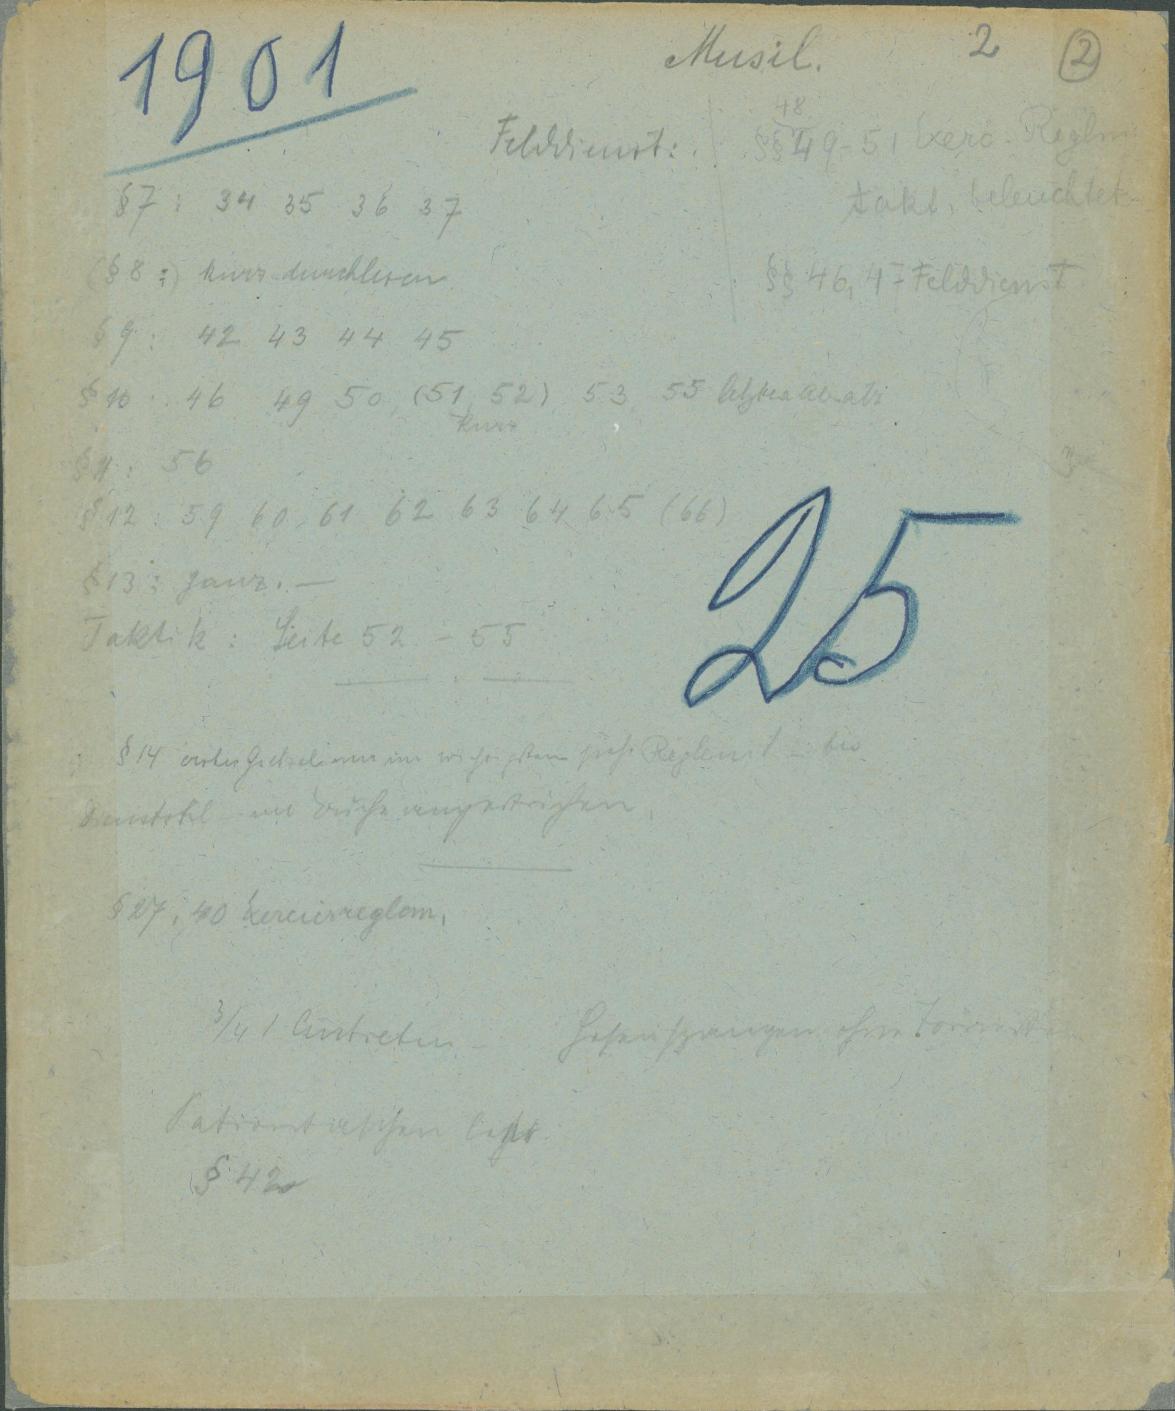 1901
Musil.
2
2
Felddienst:
48
§§ 49-51 Exerc. Reglm
takt. beleuchtet
§§ 46, 47 Felddienst
§7: 34 35 36 37
(§8:) kurz durchlesen
§9: 42 43 44 45
§10: 46 49 50 (51, 52) 53 55 letzter Absatz
kurz
§11: 56
§12: 59 60 61 62 63 64 65 (66)
§13: ganz. —
Taktik: Seite 52 - 55
25
§14 Reglement - bis
angestrichen
§27, 40 Exercierreglem.
3/4 1 Antreten - ohne
Patrontaschen
§ 42